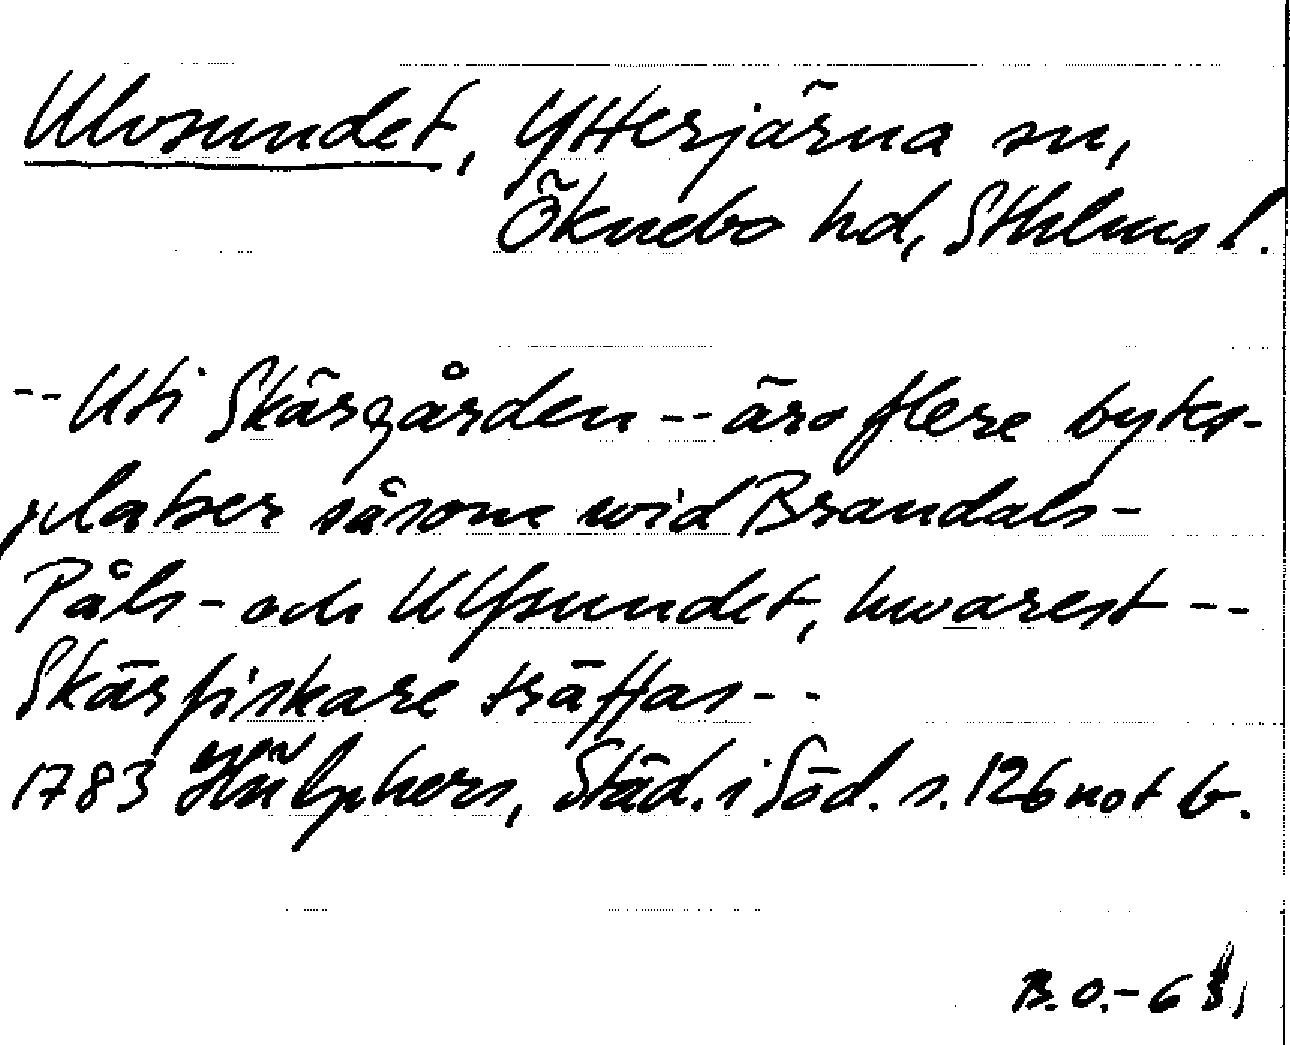 Ulvsundet, Ytterjärna sn,
Öknebo hd, Sthlms l.
-- Uti Skärgården -- äro flere bytes-
platser såsom wid Brandals-
Påls- och Ulfsundet, hwarest --
Skärfiskare träffas --
1783 Hülphers, Städ. i Söd. s. 126 not b.
B.O.-63